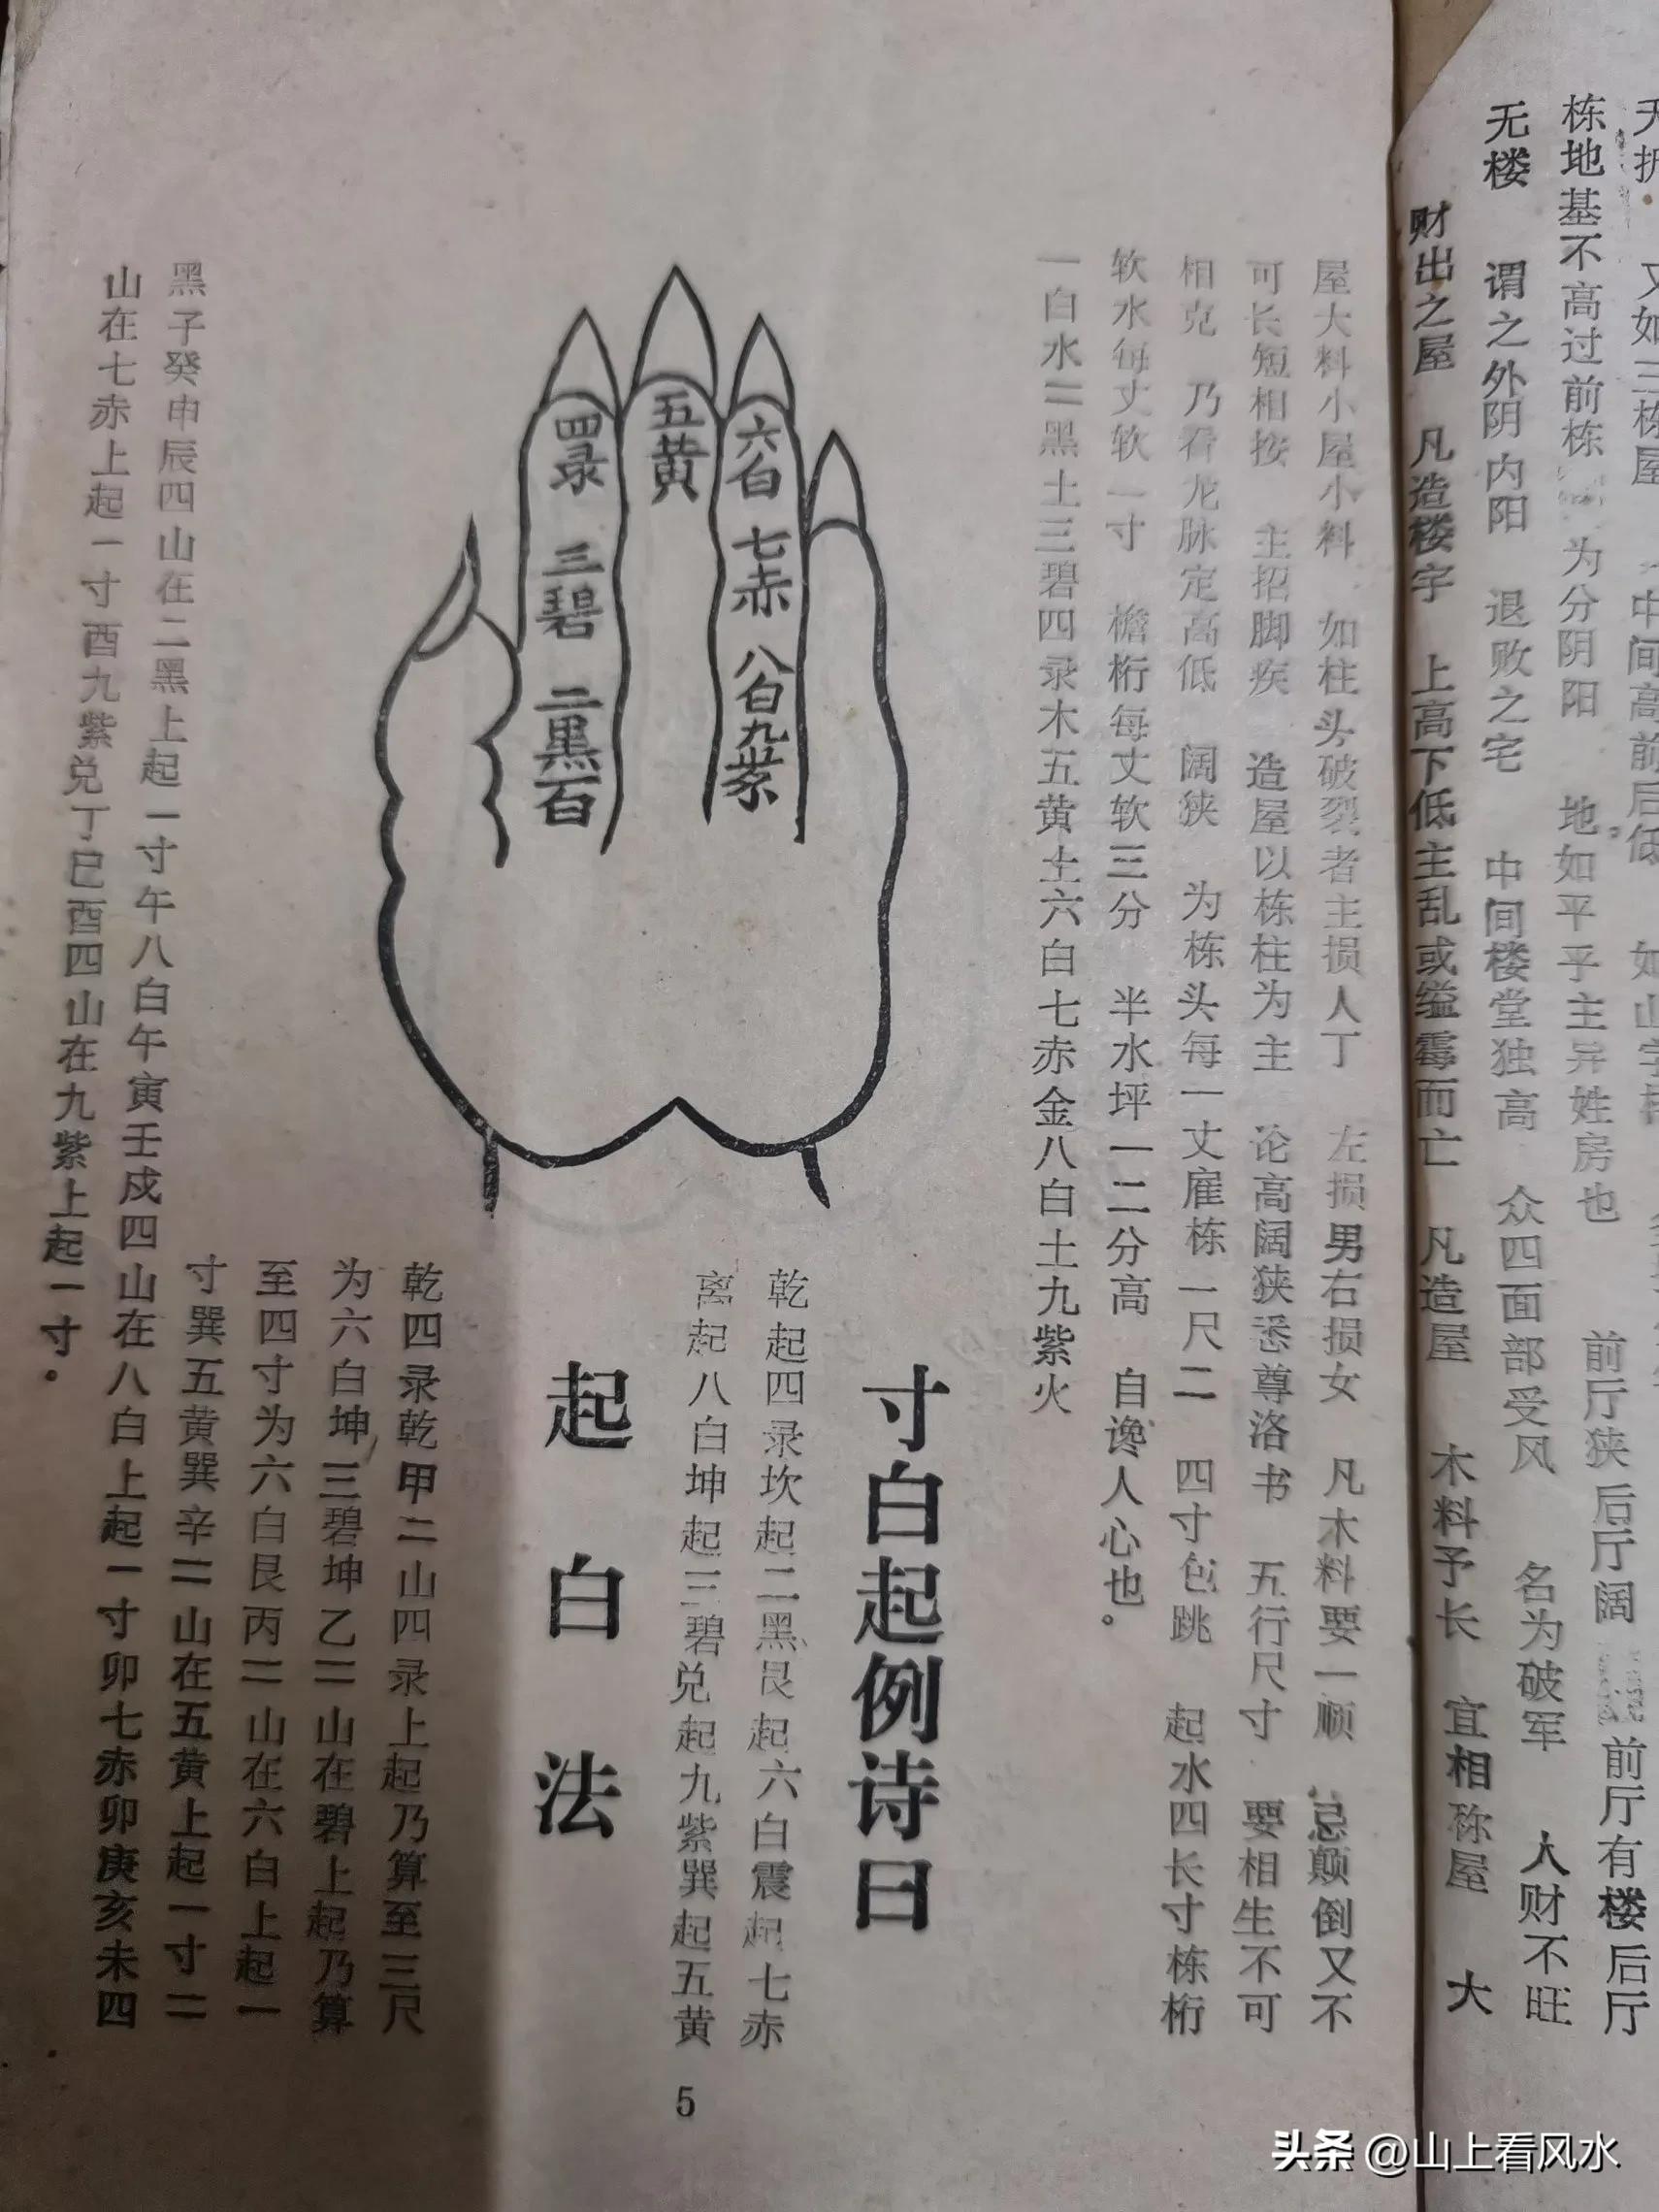 天折
又如三栋屋
中间高前后低
如山字
栋地基不高过前栋
为分阴阳
地如平乎主异姓房也
前厅狭后厅阔
前厅有楼后厅
无楼
谓之外阴内阳
退败之宅
中间楼堂独高
众四面部受风
名为破军
人财不旺
财出之屋
凡造楼宇
上高下低主乱或缢霉而亡
凡造屋
木料予长
宜相称屋
大
屋大料小屋小料
如柱头破裂者主损人丁
左损男右损女
凡木料要一顺
忌颠倒又不
可长短相按
主招脚疾
造屋以栋柱为主
论高阔狭悉尊洛书
五行尺寸
要相生不可
相克
乃看龙脉定高低
阔狭
为栋头每一丈雇栋一尺二
四寸包跳
起水四长寸栋桁
软水每丈软一寸
檐桁每丈软三分
半水坪一二分高
自谗人心也。
一白水二黑土三碧四录木五黄土六白七赤金八白土九紫火
寸白起例诗曰
乾起四录坎起二黑艮起六白震起七赤
离起八白坤起三碧兑起九紫巽起五黄
起白法
四录
三碧
二黑
一白
五黄
六白
七赤
八白
九紫
乾四录乾甲二山四录上起乃算至三尺
为六白坤三碧坤乙二山在碧上起乃算
至四寸为六白艮丙二山在六白上起一
寸巽五黄巽辛二山在五黄上起一寸二
黑子癸申辰四山在二黑上起一寸午八白午寅壬戍四山在八白上起一寸卯七赤卯庚亥未四
山在七赤上起一寸酉九紫兑丁巳酉四山在九紫上起一寸。
5
头条 @山上看风水